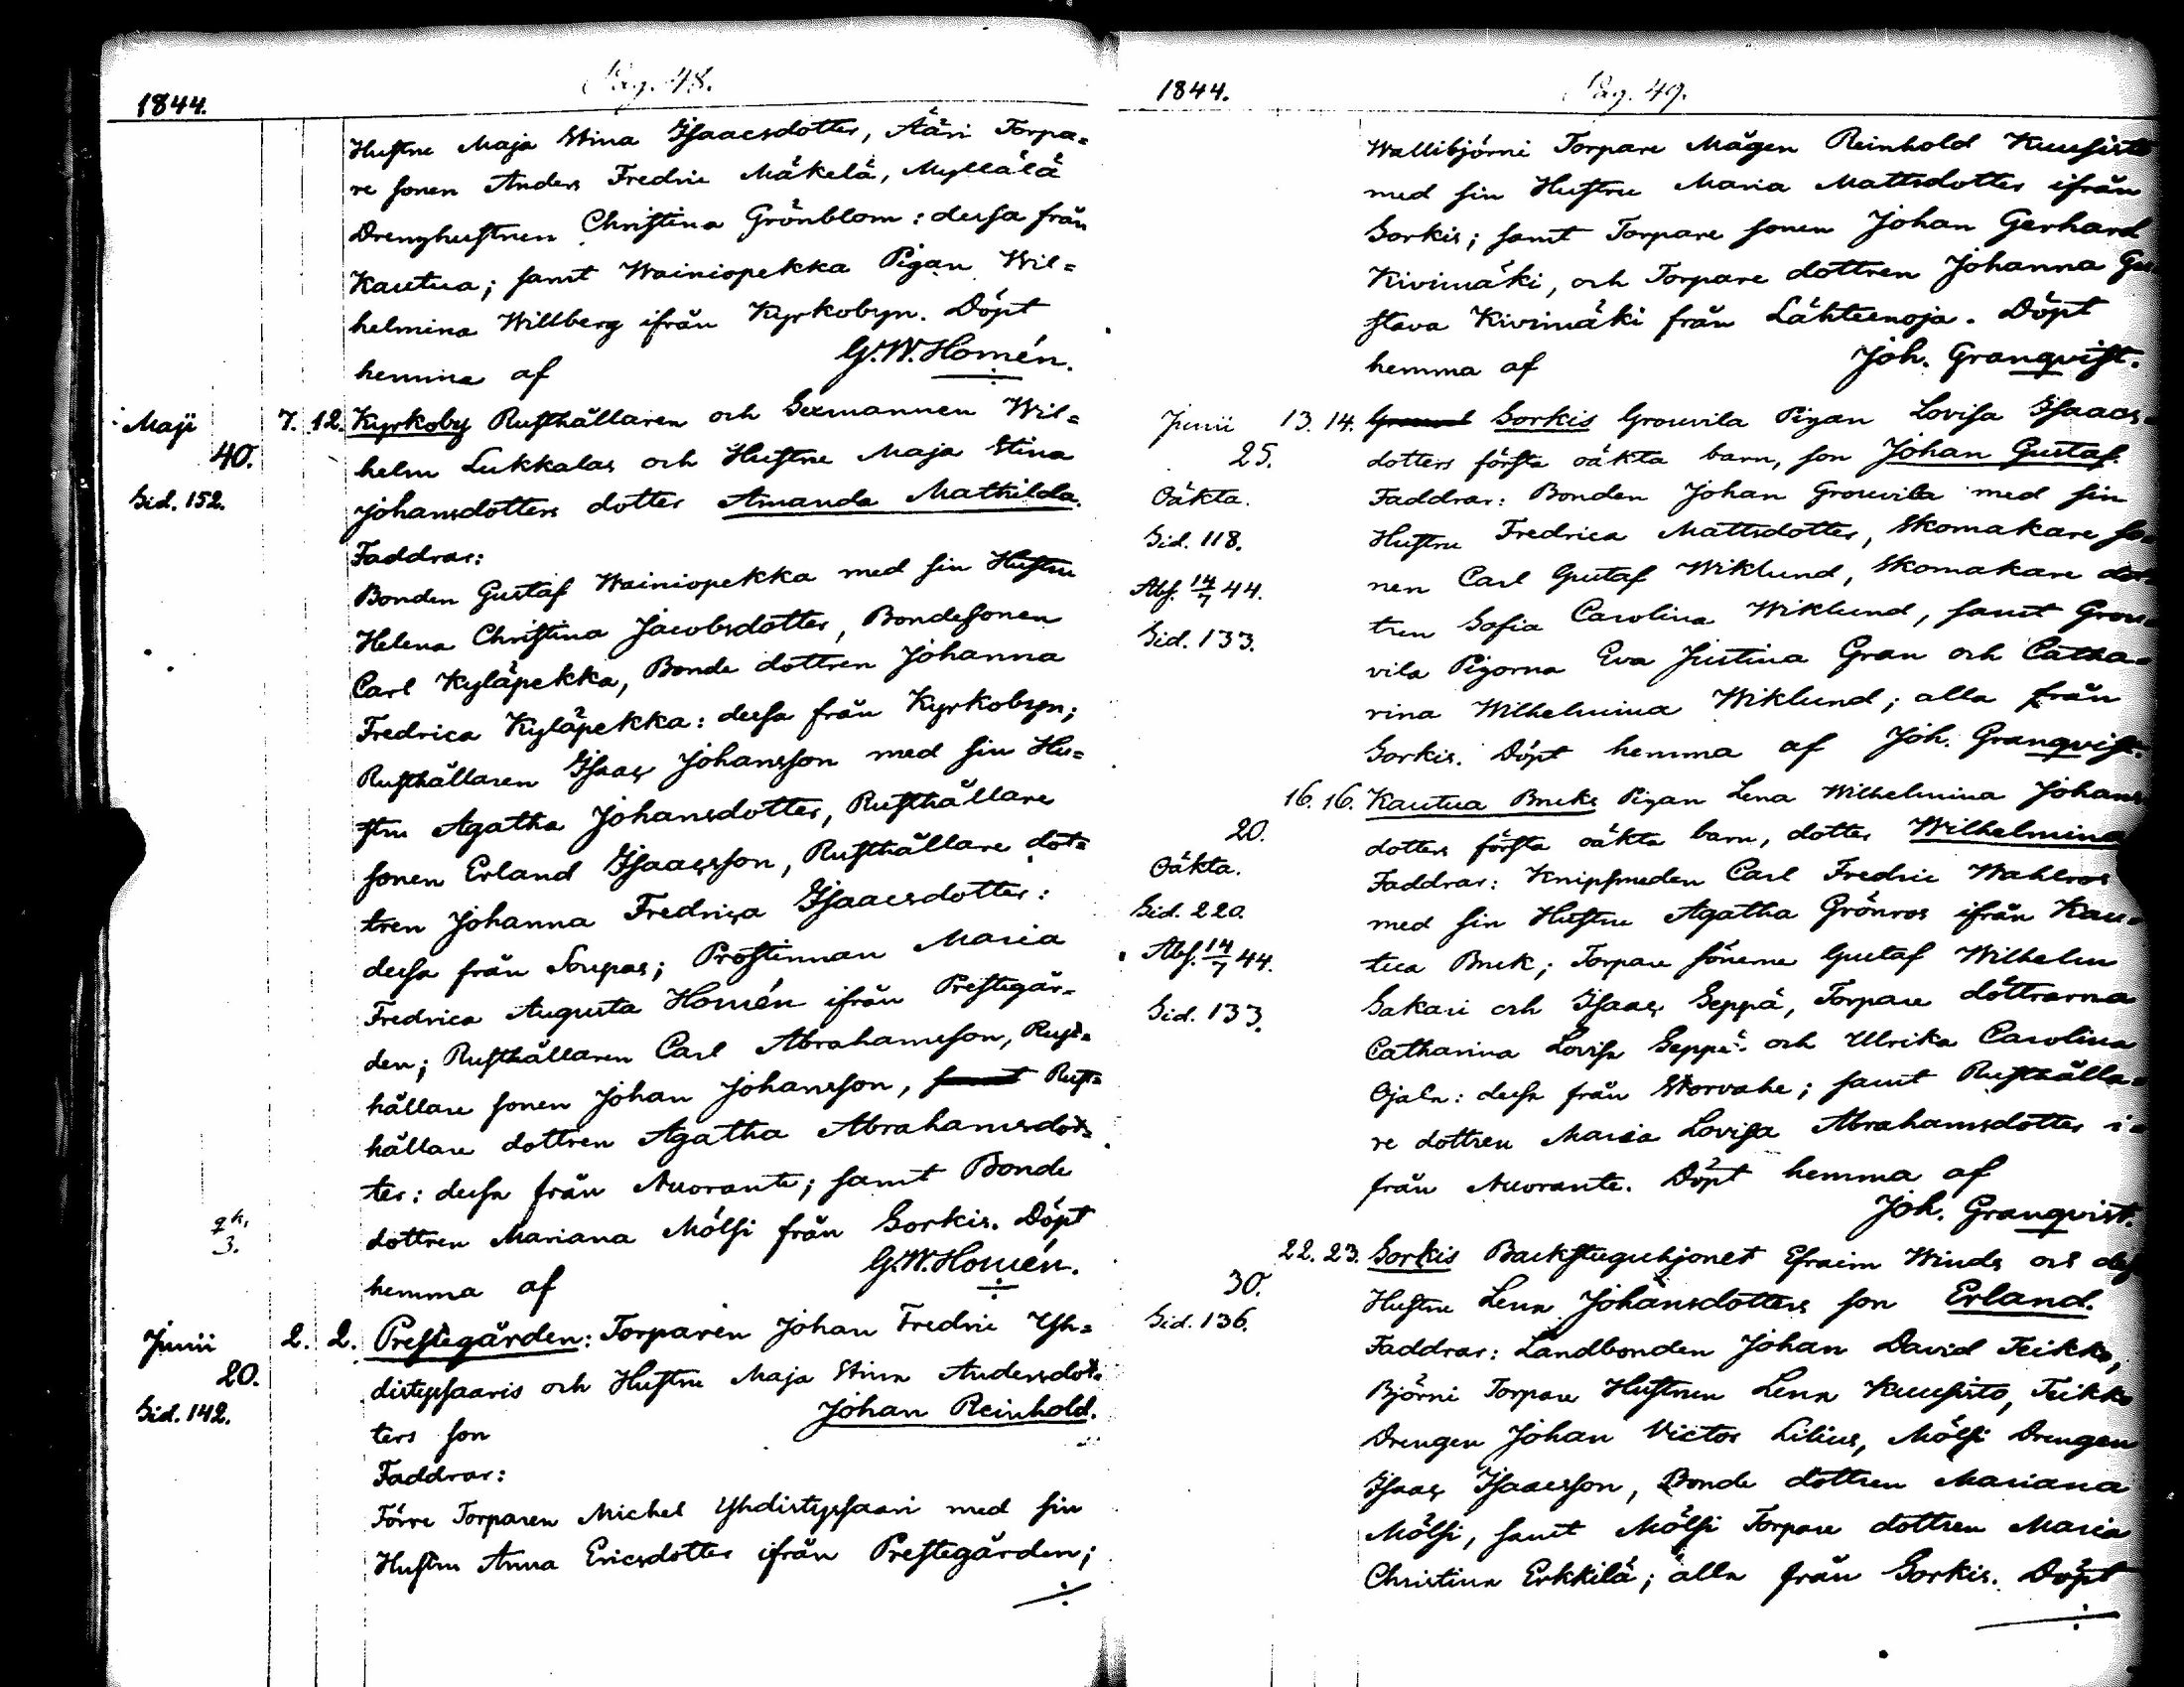 Pag. 48.
1844.
Hustru Maja Stina Isaacsdotter, Ääri Torpa=
re sonen Anders Fredric Mäkelä, Myllälä
Drenghustrun Christina Grönblom: dessa från
Kautua; samt Wainiopekka Pigan Wil=
helmina Willberg ifrån Kyrkobyn. Döpt
hemma af G.W. Homén.
Maji 7. 12. Kyrkoby Rusthållaren och Sexmannen Wil=
40. helm Lukkalas och Hustru Maja Stina
Sid. 152. Johansdotters dotter Amanda Mathilda.
Faddrar:
Bonden Gustaf Wainiopekka med sin Hustru
Helena Christina Jacobsdotter, Bondesonen
Carl Kyläpekka, Bonde dottren Johanna
Fredrica Kyläpekka: dessa från Kyrkobyn;
Rusthållaren Isaac Johansson med sin Hu=
stru Agatha Johansdotter, Rusthållare
sonen Erland Isaacsson, Rusthållare dot=
tren Johanna Fredrica Isaacsdotter:
dessa från Soupas; Prostinnan Maria
Fredrica Augusta Homén ifrån Prestegår=
den; Rusthållaren Carl Abrahamsson, Rust=
hållare sonen Johan Johansson, samt Rust=
hållare dottren Agatha Abrahamsdot=
ter: dessa från Nuorante; samt Bonde
dottren Mariana Mölsi från Sorkis. Döpt
3.
hemma af G.W. Homén.
Junii 2. 2. Prestegården: Torparen Johan Fredric Yh=
20. distyssaaris och Hustru Maja Stina Andersdot=
Sid. 142. ters son Johan Reinhold.
Faddrar:
Förre Torparen Michel Yhdistyssaari med sin
Hustru Anna Ericsdotter ifrån Prestegården;
Pag. 49.
1844.
Wallibjörni Torpare Mågen Reinhold Kuusisto
med sin Hustru Maria Mattsdotter ifrån
Sorkis; samt Torpare sonen Johan Gerhard
Kivimäki, och Torpare dottren Johanna Gu
stava Kivimäki från Lähteenoja. Döpt
hemma af Joh. Granqvist.
Junii 13. 14. Sorkis Grouvila Pigan Lovisa Isaacs=
25. dotters första oäkta barn, son Johan Gustaf.
Oäkta. Faddrar: Bonden Johan Grouvila med sin
Sid. 118. Hustru Fredrica Mattsdotter, Skomakare so=
Abs. 14/7 44. nen Carl Gustaf Wiklund, Skomakare dot
Sid. 133. tren Sofia Carolina Wiklund, samt Grou=
vila Pigorna Eva Justina Gran och Catha=
rina Wilhelmina Wiklund; alla från
Sorkis. Döpt hemma af Joh. Granqvist.
16. 16. Kautua Bruks Pigan Lena Wilhelmina Johans
20. dotters första oäkta barn, dotter Wilhelmina
Oäkta. Faddrar: Knipsmeden Carl Fredric Wahlros
Sid. 220. med sin Hustru Agatha Grönros ifrån Kau=
Abs. 14/7 44. tua Bruk; Torpare sönerne Gustaf Wilhelm
Sid. 133. Sakari och Isaac Seppä, Torpare döttrarna
Catharina Lovisa Seppä och Ulrika Carolina
Ojala: dessa från Storvahe; samt Rusthålla=
re dottren Maria Lovisa Abrahamsdotter i=
från Nuorante. Döpt hemma af
Joh. Granqvist.
22. 23. Sorkis Backstuguhjonet Efraim Winds och dess
30. Hustru Lena Johansdotters son Erland.
Sid. 136. Faddrar: Landbonden Johan David Teikko,
Björni Torpare Hustrun Lena Kuusisto, Teikko
Drengen Johan Victor Lilius, Mölsi Drengen
Isaac Isaacsson, Bonde dottren Mariana
Mölsi, samt Mölsi Torpare dottren Maria
Christina Erkkilä; alla från Sorkis. Döpt